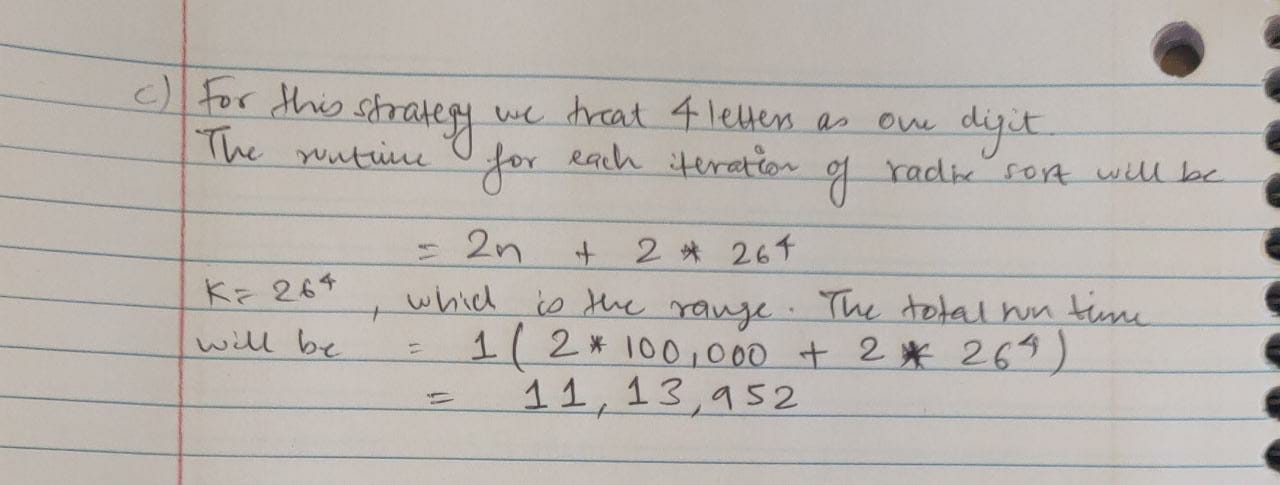 c) For this strategy we treat 4 letters as one digit.
The runtime for each iteration of radix sort will be
= 2n + 2 * 26⁴
K = 26⁴, which is the range. The total run time
will be = 1 ( 2 * 100,000 + 2 * 26⁴ )
= 11,13,952